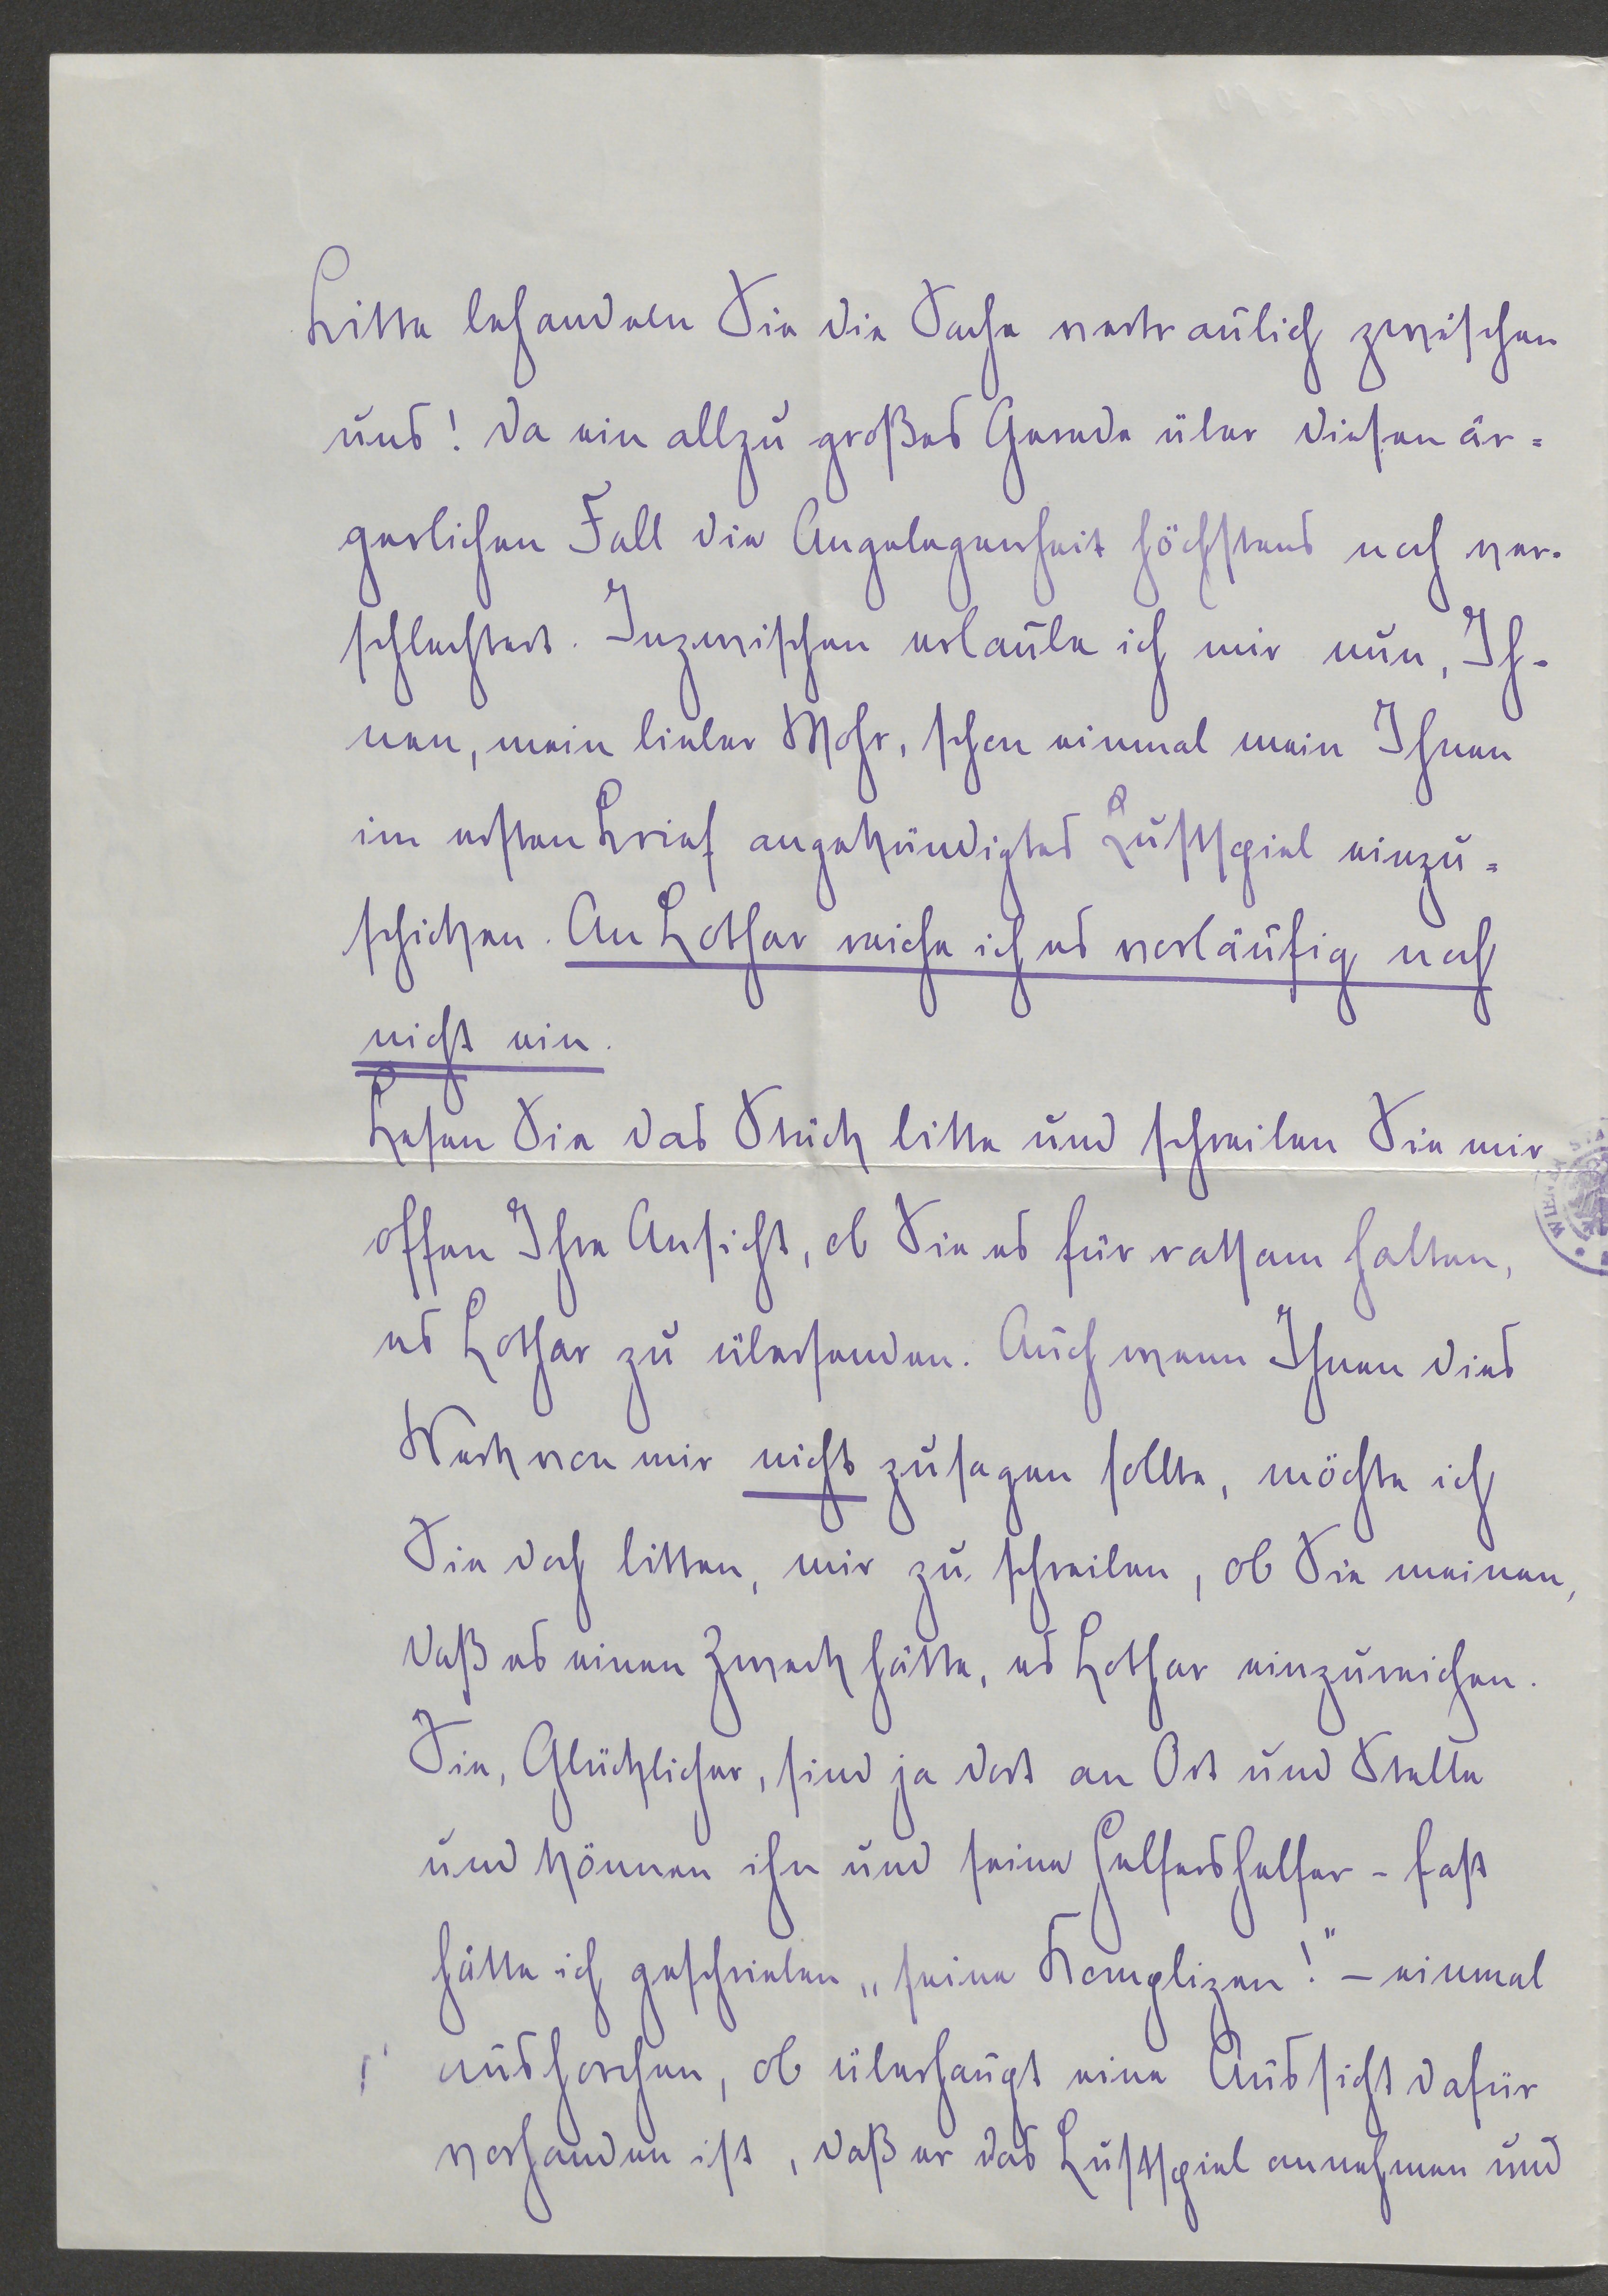 Bitte behandeln Sie die Sache vertraulich zwischen
uns! Da ein allzu großes Gerede über diesen är=
gerlichen Fall die Angelegenheit höchstens noch ver-
schlechtert. Inzwischen erlaube ich mir nun, Ih-
nen, mein lieber Mohr, schon einmal mein Ihnen
im ersten Brief angekündigtes Lustspiel einzu=
schicken. An Lothar reiche ich es vorläufig noch
nicht ein.
Lesen Sie das Stück bitte und schreiben Sie mir
offen Ihre Ansicht, ob Sie es für ratsam halten,
es Lothar zu übersenden. Auch wenn Ihnen dies
Werk von mir nicht zusagen sollte, möchte ich
Sie doch bitten, mir zu schreiben, ob Sie meinen,
daß es einen Zweck hätte, es Lothar einzureichen.
Sie, Glücklicher, sind ja dort an Ort und Stelle
und können ihn und seine Helfershelfer - fast
hätte ich geschrieben „seine Komplizen!" - einmal
aushorchen, ob überhaupt eine Aussicht dafür
vorhanden ist, daß er das Lustspiel annehmen und
WIENER